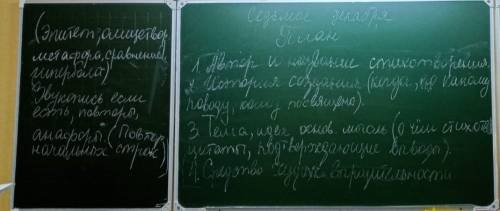 Седьмое декабря
План
1. Автор и название стихотворения.
2. История создания (когда, по какому
поводу, кому посвящено).
3. Тема, идея, основ. мысль (о чём стихотв
цитаты, подтверждающие выводы).
4. Средства худож. выразительности
(Эпитет, олицетвор,
метафора, сравнение,
гипербола)
Звукопись если
есть, повторы,
анафоры. (Повтор
начальных строк)